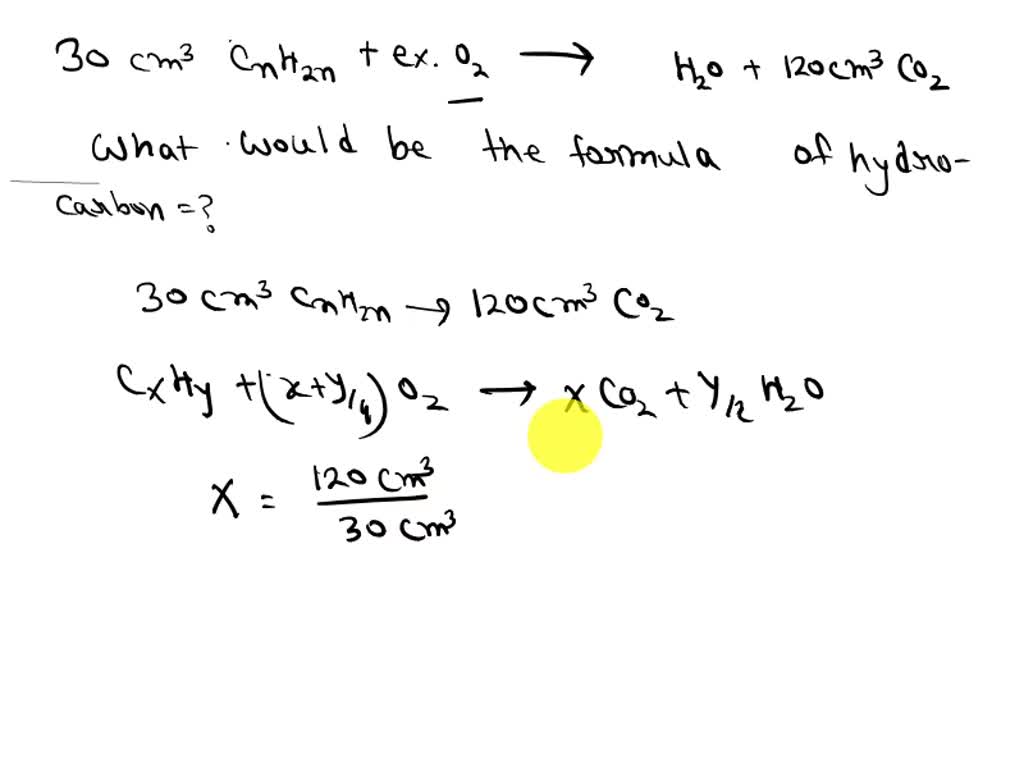 30 cm³ CnH2n + ex. O2 → H2O + 120cm³ CO2
What would be the formula of hydro-
carbon = ?
30 cm³ CnH2n → 120cm³ CO2
CxHy + (x+y/4) O2 → x CO2 + y/2 H2O
X = 120 cm³ / 30 cm³